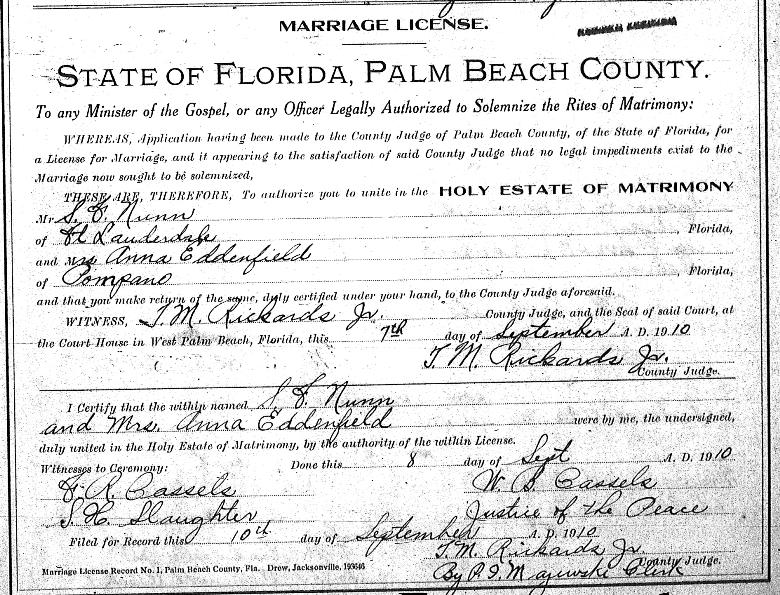 MARRIAGE LICENSE.
STATE OF FLORIDA, PALM BEACH COUNTY.
To any Minister of the Gospel, or any Officer Legally Authorized to Solemnize the Rites of Matrimony:
WHEREAS, Application having been made to the County Judge of Palm Beach County, of the State of Florida, for
a License for Marriage, and it appearing to the satisfaction of said County Judge that no legal impediments exist to the
Marriage now sought to be solemnized,
THESE ARE, THEREFORE, To authorize you to unite in the HOLY ESTATE OF MATRIMONY
Mr S. F. Nunn
of Ft Lauderdale, Florida,
and Mrs Anna Eddenfield
of Pompano, Florida,
and that you make return of the same, duly certified under your hand, to the County Judge aforesaid.
WITNESS, T. M. Rickards Jr. County Judge, and the Seal of said Court, at
the Court House in West Palm Beach, Florida, this 7th day of September A. D. 1910
T. M. Rickards Jr.
County Judge.
I Certify that the within named S F Nunn
and Mrs. Anna Eddenfield were by me, the undersigned,
duly united in the Holy Estate of Matrimony, by the authority of the within License.
Witnesses to Ceremony: Done this 8 day of Sept A. D. 1910
F. R. Cassels W. B. Cassels
S. H. Slaughter Justice of the Peace
Filed for Record this 10th day of September A. D. 1910
T. M. Rickards Jr. County Judge.
Marriage License Record No. 1, Palm Beach County, Fla. Drew, Jacksonville, 193646 By P. I. Majewski Clerk